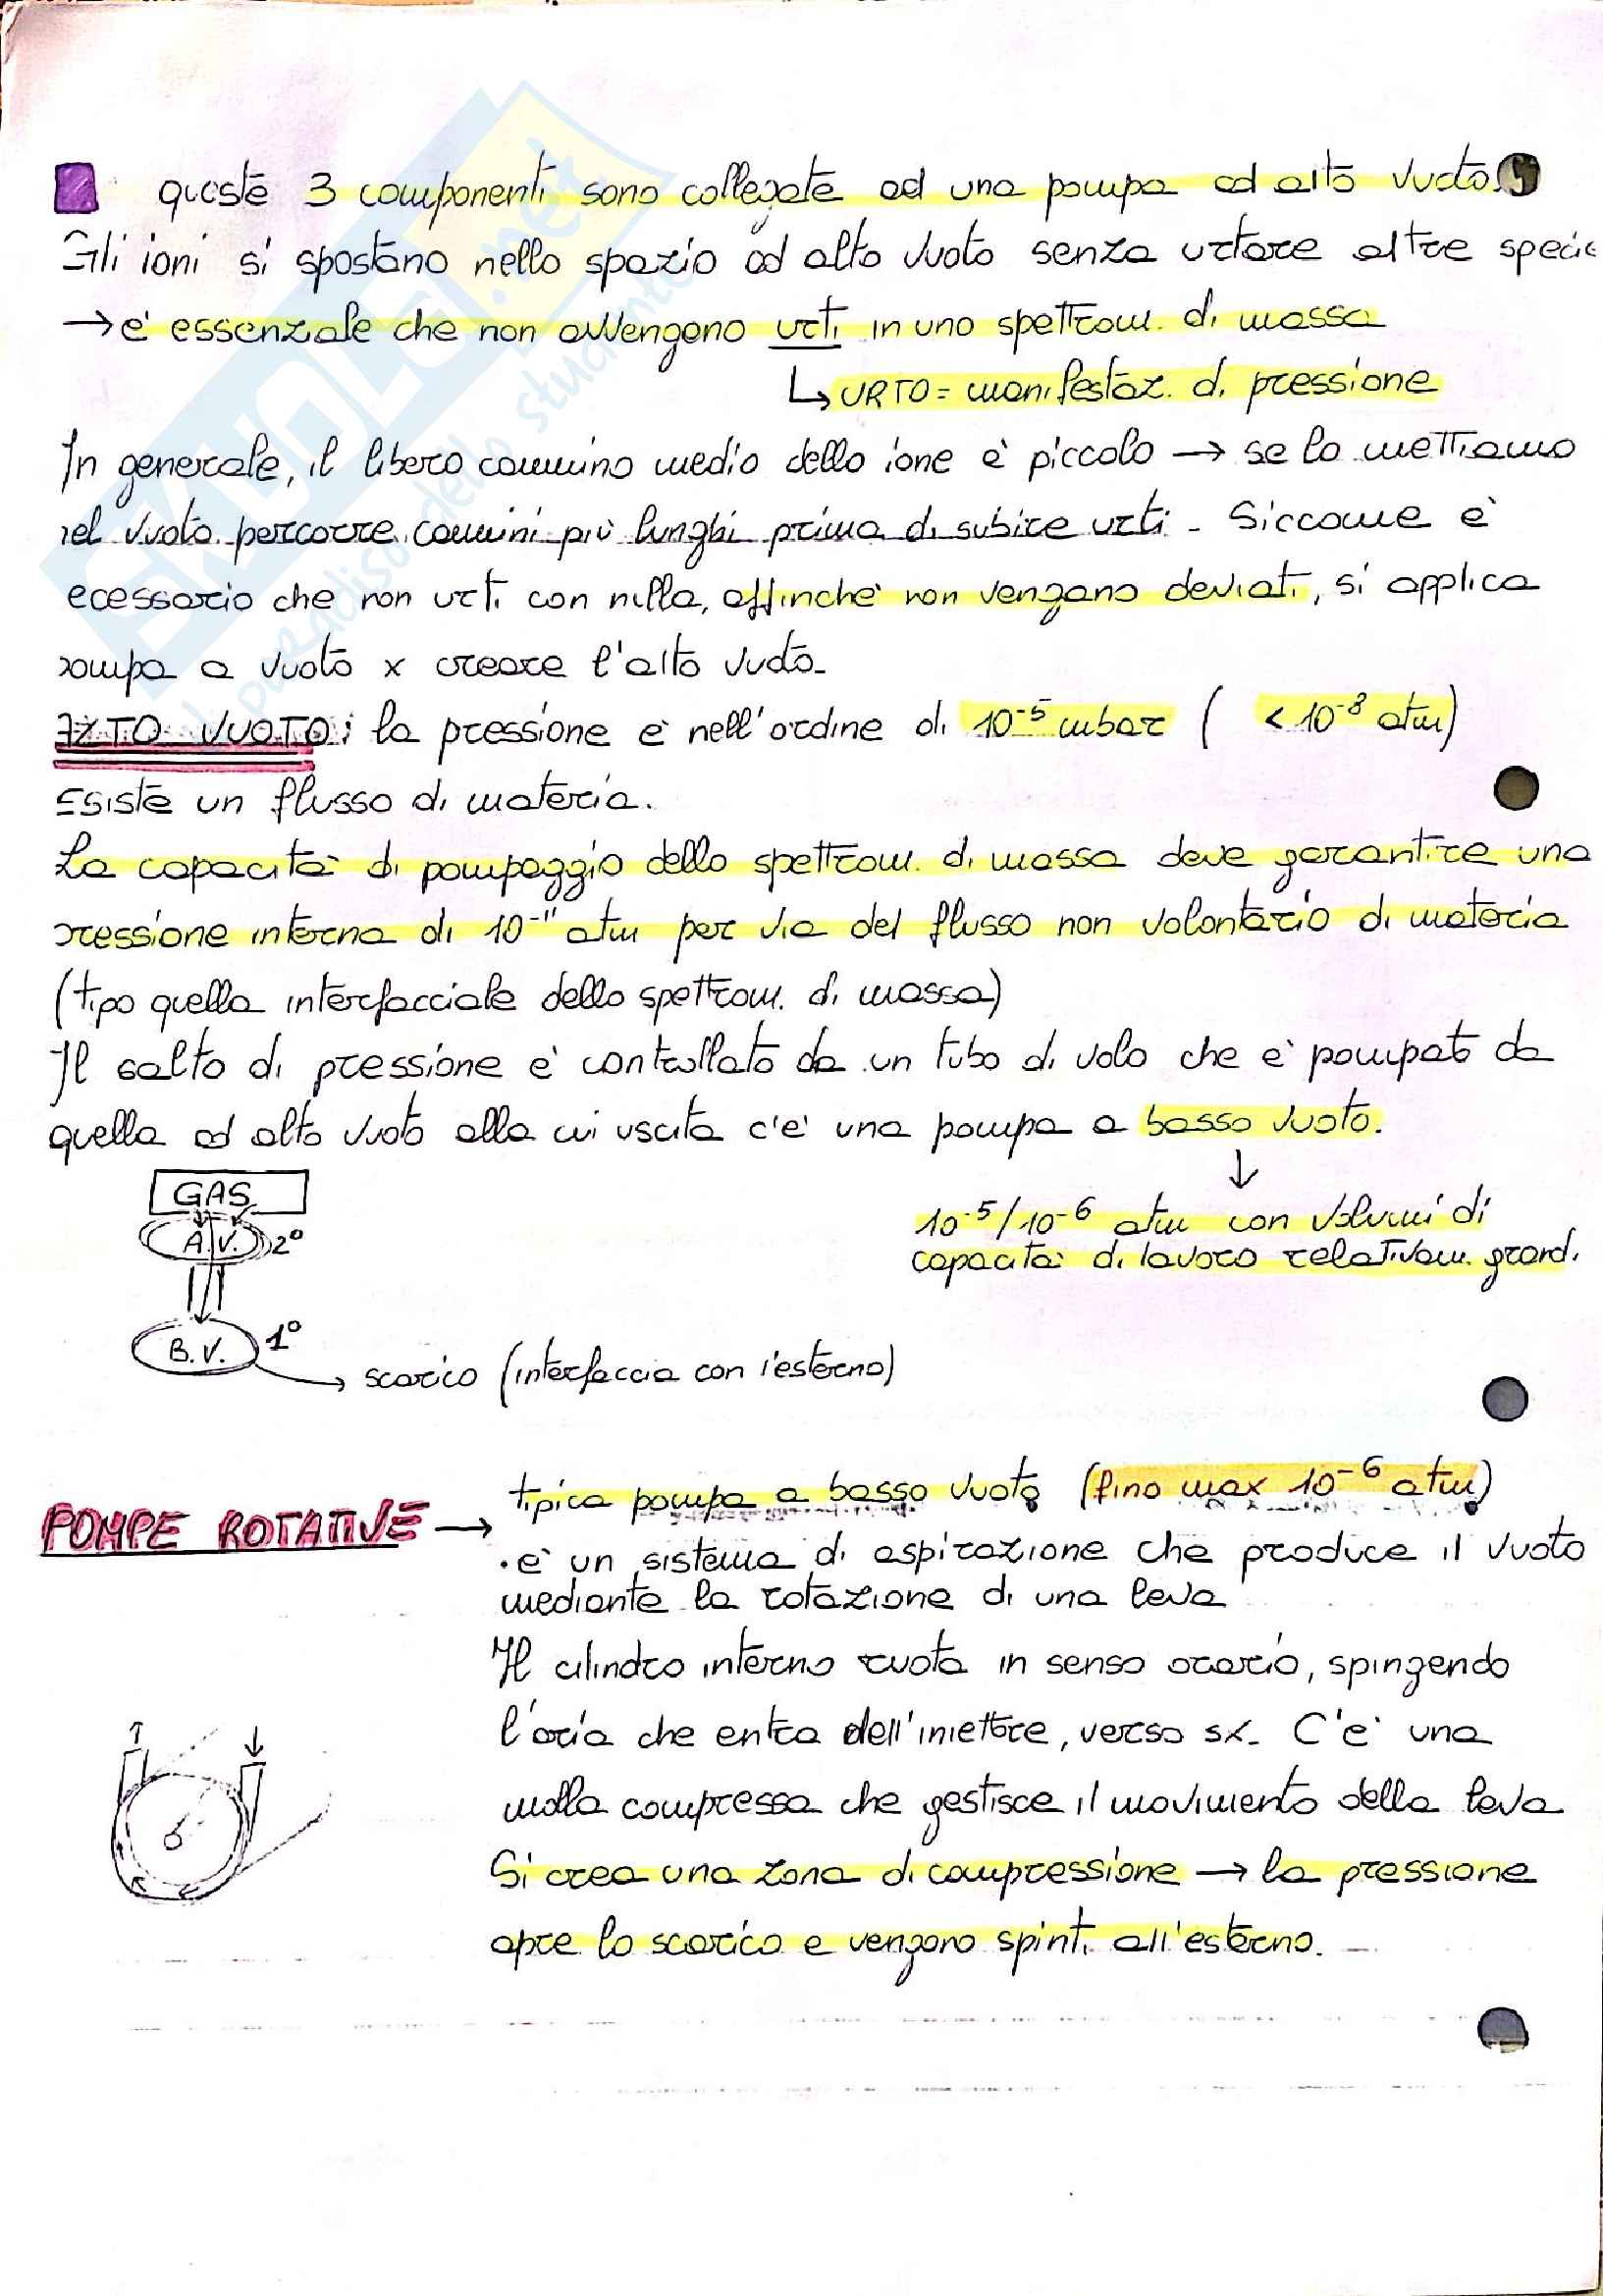 queste 3 componenti sono collegate ad una pompa ad alto vuoto.
Gli ioni si spostano nello spazio ad alto vuoto senza urtare altre specie
→ è essenziale che non avvengano urti in uno spettrom. di massa
↳ URTO = manifestaz. di pressione
In generale, il libero cammino medio dello ione è piccolo → se lo mettiamo
nel vuoto percorre cammini più lunghi prima di subire urti - Siccome è
ecessario che non urti con nulla, affinchè non vengano deviati, si applica
pompa a vuoto x creare l'alto vuoto.
ALTO VUOTO: la pressione è nell'ordine di 10⁻⁵ mbar ( < 10⁻⁸ atm)
Esiste un flusso di materia.
La capacità di pompaggio dello spettrom. di massa deve garantire una
pressione interna di 10⁻¹¹ atm per via del flusso non volontario di materia
(tipo quella interfacciale dello spettrom. di massa)
Il salto di pressione è controllato da un tubo di volo che è pompato da
quella ad alto vuoto alla cui uscita c'è una pompa a basso vuoto.
↓
10⁻⁵/10⁻⁶ atm con volumi di
capacità di lavoro relativam. grandi
GAS
A.V. 2°
B.V. 1°
→ scarico (interfaccia con l'esterno)
POMPE ROTATIVE →
tipica pompa a basso vuoto (fino max 10⁻⁶ atm)
• è un sistema di aspirazione che produce il vuoto
mediante la rotazione di una leva
Il cilindro interno ruota in senso orario, spingendo
l'aria che entra dell'iniettore, verso sx. C'è una
molla compressa che gestisce il movimento della leva
Si crea una zona di compressione → la pressione
apre lo scarico e vengono spinti all'esterno.
SKUOLA.net
il paradiso dello studente